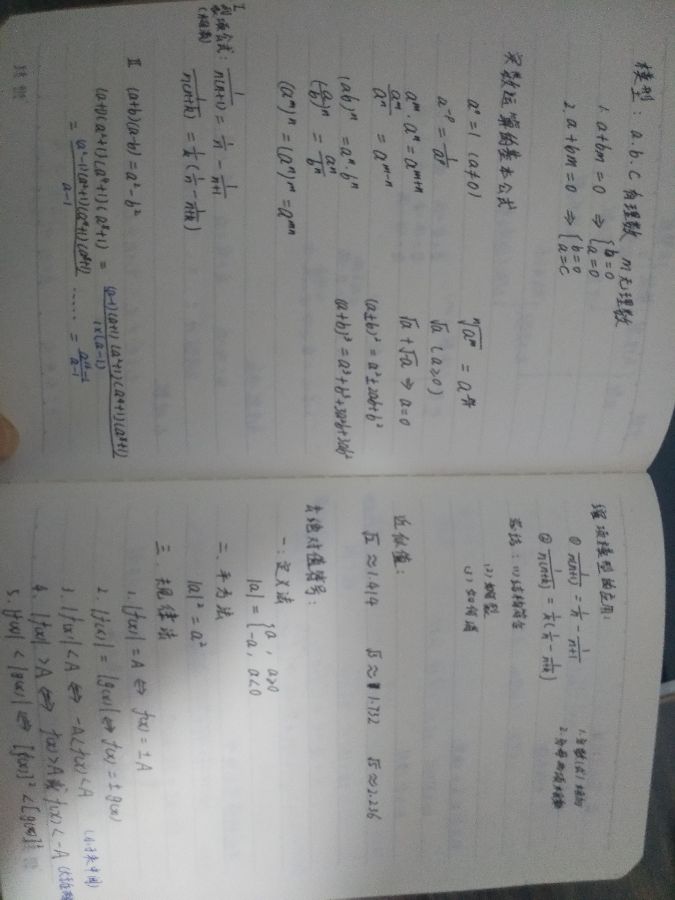 模型：a.b.c 有理数 m无理数
1. a+bm=0 ⇒ {b=0 a=0
2. a+bm=0 ⇒ {b=0 a=c
实数运算的基本公式
a⁰=1 (a≠0)
a⁻ᵖ=1/aᵖ
aᵐ·aⁿ=aᵐ⁺ⁿ
aᵐ/aⁿ=aᵐ⁻ⁿ
(ab)ⁿ=aⁿ·bⁿ
(a/b)ⁿ=aⁿ/bⁿ
(aᵐ)ⁿ=(aⁿ)ᵐ=aᵐⁿ
√a (a≥0)
√a+√-a ⇒ a=0
(a±b)²=a²±2ab+b²
(a+b)³=a³+b³+3a²b+3ab²
I. 裂项公式：1/n(n+1)=1/n-1/n+1
1/n(n+k)=1/k(1/n-1/n+k)
II (a+b)(a-b)=a²-b²
(a+1)(a²+1)(a⁴+1)(a⁸+1)=(a-1)(a+1)(a²+1)(a⁴+1)(a⁸+1)/1×(a-1)
=(a²-1)(a²+1)(a⁴+1)(a⁸+1)/a-1 ······=a¹⁶-1/a-1
裂项模型的应用：
① 1/n(n+1)=1/n-1/n+1
② 1/n(n+k)=1/k(1/n-1/n+k)
总结：(1)结构简单
近似值：
√2≈1.414 √3≈1.732 √5≈2.236
去绝对值符号：
一：定义法
|a|={a, a≥0 -a, a<0
二：平方法
|a|²=a²
三：规律法
1. |f(x)|=A ⇔ f(x)=±A
2. |f(x)|=|g(x)| ⇔ f(x)=±g(x)
3. |f(x)|<A ⇔ -A<f(x)<A (小于取中间)
4. |f(x)|>A ⇔ f(x)>A或f(x)<-A
5. |f(x)|<|g(x)| ⇔ [f(x)]²<[g(x)]²